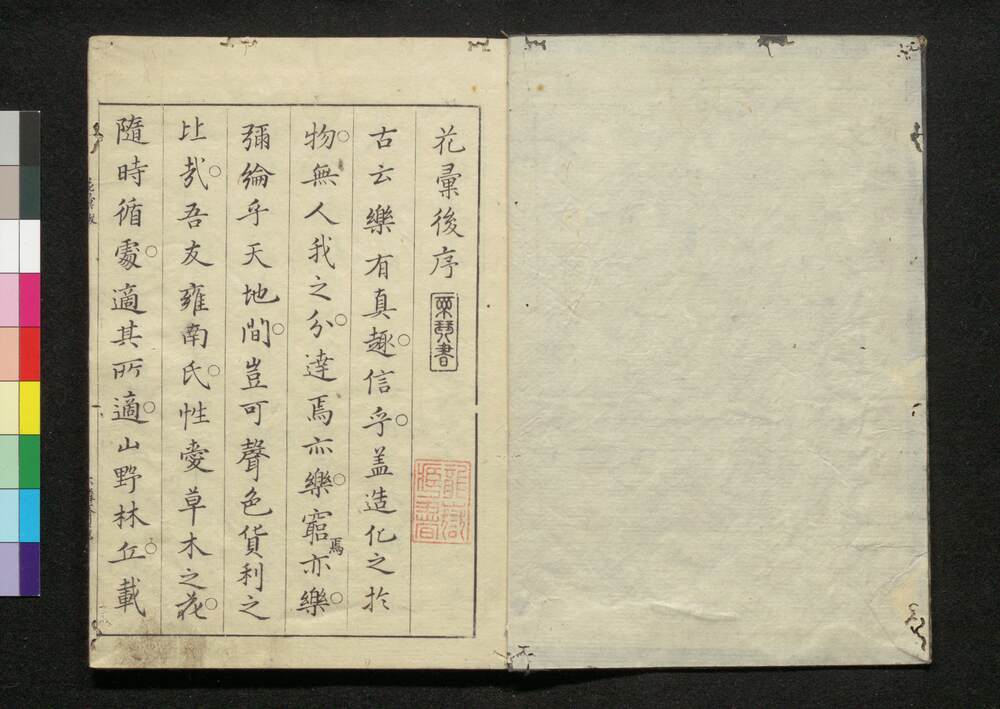 花彙後序
古云樂有真趣○信乎○盖造化之於
物○無人我之分○達焉亦樂○窮焉亦樂○
彌綸乎天地間○豈可聲色貨利之
比哉○吾友雍南氏○性愛草木之花○
隨時循處○適其所適○山野林丘○載